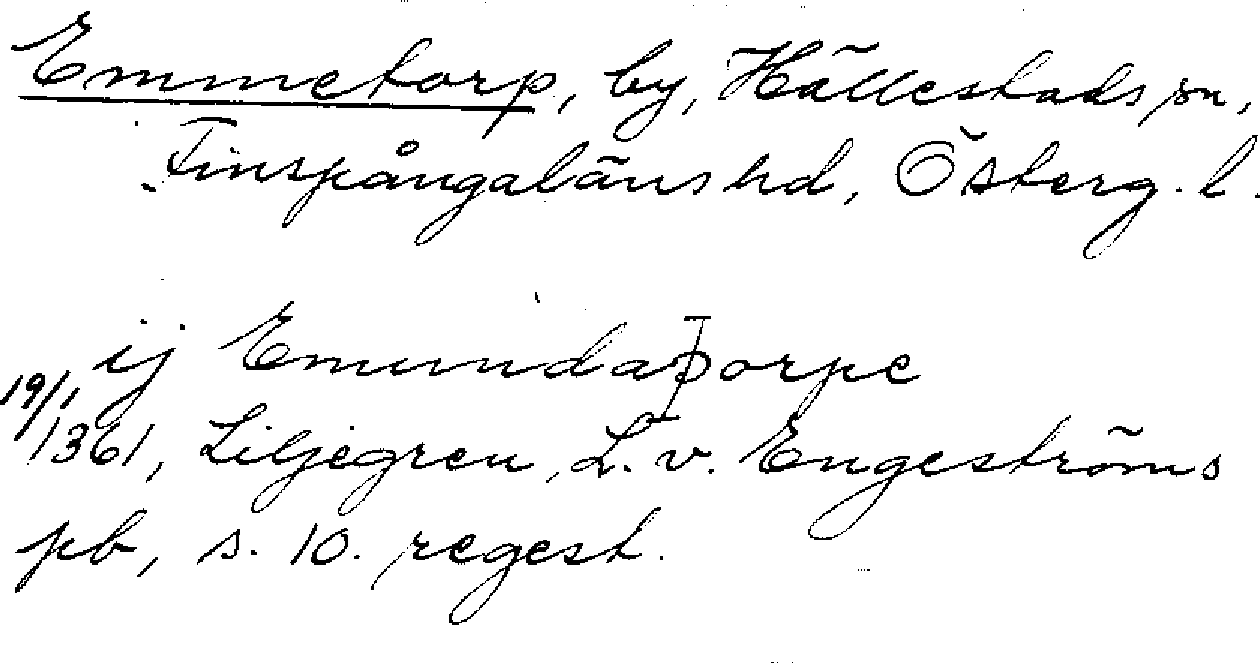 Emmetorp, by, Hällestads sn,
Finspångaläns hd, Österg. l.
ij Emundaþorpe
19/1 1361, Liljegren, L. v. Engeströms
pb, s. 10. regest.